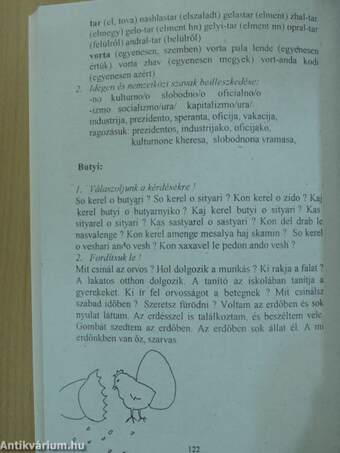 tar (el, tova) nashlastar (elszaladt) gelastar (elment) zhal-tar
(elmegy) gelo-tar (elment hn) gelyi-tar (elment nn) opral-tar
(felülről) andral-tar (belülről)
vorta (egyenesen, szemben) vorta pala lende (egyenesen
értük) vorta zhav (egyenesen megyek) vort-anda kodi
(egyenesen azért)
2. Idegen és nemzetközi szavak beilleszkedése:
-no kulturno/o slobodno/o oficialno/o
-izmo socializmo/ura/ kapitalizmo/ura/
industrija, prezidento, speranta, oficija, vakacija,
ragozásuk: prezidentos, industrijako, oficijako,
kulturnone kheresa, slobodnona vramasa,
Butyi:
1. Válaszoljunk a kérdésekre !
So kerel o butyari ? So kerel o sityari ? Kon kerel o zido ? Kaj
kerel butyi o butyarnyiko ? Kaj kerel butyi o sityari ? Kas
sityarel o sityari ? Kas sastyarel o sastyari ? Kon del drab le
nasvalenge ? Kon kerel amenge mesalya haj skamin ? So kerel
o veshari ando vesh ? Kon xaxavel le pedon ando vesh ?
2. Fordítsuk le !
Mit csinál az orvos ? Hol dolgozik a munkás ? Ki rakja a falat ?
A lakatos otthon dolgozik. A tanító az iskolában tanítja a
gyerekeket. Ki ír fel orvosságot a betegnek ? Mit csinálsz
szabad időben ? Szeretsz fürödni ? Voltam az erdőben és sok
nyulat láttam. Az erdésszel is találkoztam, és beszéltem vele.
Gombát szedtem az erdőben. Az erdőben sok állat él. A mi
erdőinkben van őz, szarvas.
122
Antikvárium.hu